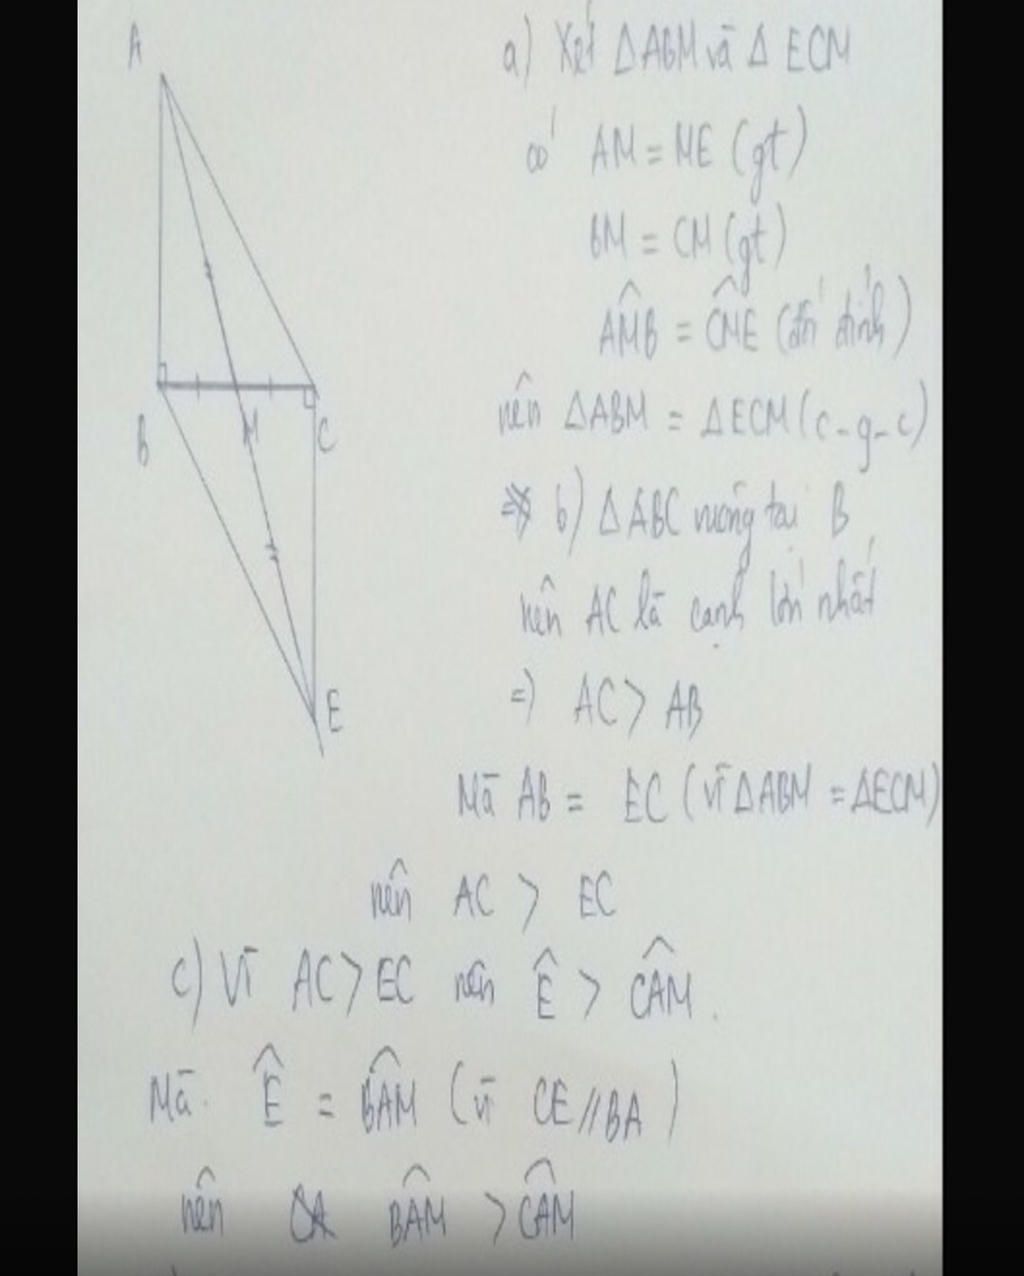 A
B
M
C
E
a) Xét ΔABM và Δ ECM
có AM = ME (gt)
BM = CM (gt)
AMB̂ = CMÊ (đối đỉnh)
nên ΔABM = ΔECM (c-g-c)
b) ΔABC vuông tại B
nên AC là cạnh lớn nhất
=) AC > AB
Mà AB = EC (vì ΔABM = ΔECM)
nên AC > EC
c) Vì AC > EC nên Ê > CÂM.
Mà Ê = BÂM (vì CE // BA)
nên BÂM > CÂM